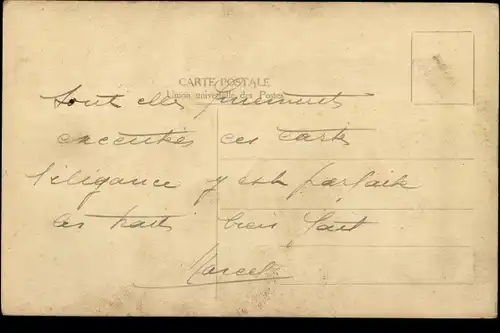 CARTE POSTALE
Union universelle des Postes
Sont elles finement
executées ces cartes
l'élégance y est parfaite
les traits bien
Marcel